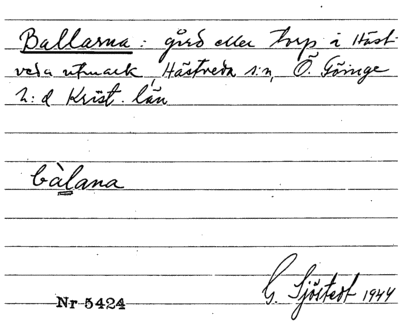 Ballarna: gård eller torp i Häst-
veda utmark, Hästveda s:n, Ö. Göinge
h:d Krist. län
bàlana
G. Sjöstedt 1944
Nr 5424